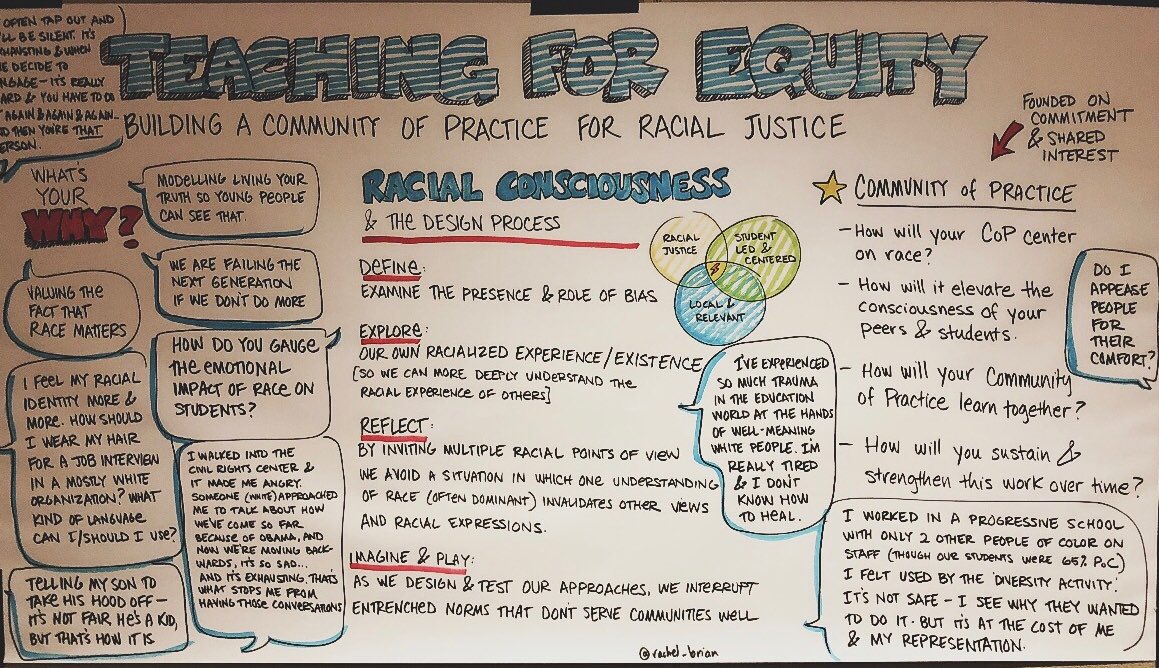 OFTEN TAP OUT AND
BE SILENT. IT'S
& WHEN
DECIDE TO
IT'S REALLY
& YOU HAVE TO DO
AGAIN & AGAIN & AGAIN-
THEN YOU'RE THAT
TEACHING FOR EQUITY
BUILDING A COMMUNITY OF PRACTICE FOR RACIAL JUSTICE
FOUNDED ON
COMMITMENT
& SHARED
INTEREST
WHAT'S
YOUR
WHY?
MODELLING LIVING YOUR
TRUTH SO YOUNG PEOPLE
CAN SEE THAT.
WE ARE FAILING THE
NEXT GENERATION
IF WE DON'T DO MORE
VALUING THE
FACT THAT
RACE MATTERS
HOW DO YOU GAUGE
THE EMOTIONAL
IMPACT OF RACE ON
STUDENTS?
I FEEL MY RACIAL
IDENTITY MORE &
MORE. HOW SHOULD
I WEAR MY HAIR
FOR A JOB INTERVIEW
IN A MOSTLY WHITE
ORGANIZATION? WHAT
KIND OF LANGUAGE
CAN I/SHOULD I USE?
I WALKED INTO THE
CIVIL RIGHTS CENTER &
IT MADE ME ANGRY.
SOMEONE (WHITE) APPROACHED
ME TO TALK ABOUT HOW
WE'VE COME SO FAR
BECAUSE OF OBAMA, AND
NOW WE'RE MOVING BACK-
WARDS, IT'S SO SAD...
AND IT'S EXHAUSTING. THAT'S
WHAT STOPS ME FROM
HAVING THOSE CONVERSATIONS
TELLING MY SON TO
TAKE HIS HOOD OFF-
IT'S NOT FAIR. HE'S A KID,
BUT THAT'S HOW IT IS
RACIAL CONSCIOUSNESS
& THE DESIGN PROCESS
RACIAL
JUSTICE
STUDENT
LED &
CENTERED
LOCAL &
RELEVANT
DEFINE:
EXAMINE THE PRESENCE & ROLE OF BIAS
EXPLORE:
OUR OWN RACIALIZED EXPERIENCE/EXISTENCE
[SO WE CAN MORE DEEPLY UNDERSTAND THE
RACIAL EXPERIENCE OF OTHERS]
REFLECT:
BY INVITING MULTIPLE RACIAL POINTS OF VIEW
WE AVOID A SITUATION IN WHICH ONE UNDERSTANDING
OF RACE (OFTEN DOMINANT) INVALIDATES OTHER VIEWS
AND RACIAL EXPRESSIONS.
IMAGINE & PLAY:
AS WE DESIGN & TEST OUR APPROACHES, WE INTERRUPT
ENTRENCHED NORMS THAT DON'T SERVE COMMUNITIES WELL
I'VE EXPERIENCED
SO MUCH TRAUMA
IN THE EDUCATION
WORLD AT THE HANDS
OF WELL-MEANING
WHITE PEOPLE. I'M
REALLY TIRED
& I DON'T
KNOW HOW
TO HEAL.
COMMUNITY OF PRACTICE
- How will your CoP center
on race?
- How will it elevate the
consciousness of your
peers & students.
- How will your Community
of Practice learn together?
- How will you sustain &
strengthen this work over time?
DO I
APPEASE
PEOPLE
FOR
THEIR
COMFORT?
I WORKED IN A PROGRESSIVE SCHOOL
WITH ONLY 2 OTHER PEOPLE OF COLOR ON
STAFF (THOUGH OUR STUDENTS WERE 65% PoC)
I FELT USED BY THE 'DIVERSITY ACTIVITY'.
IT'S NOT SAFE - I SEE WHY THEY WANTED
TO DO IT - BUT IT'S AT THE COST OF ME
& MY REPRESENTATION.
@rachel_brian